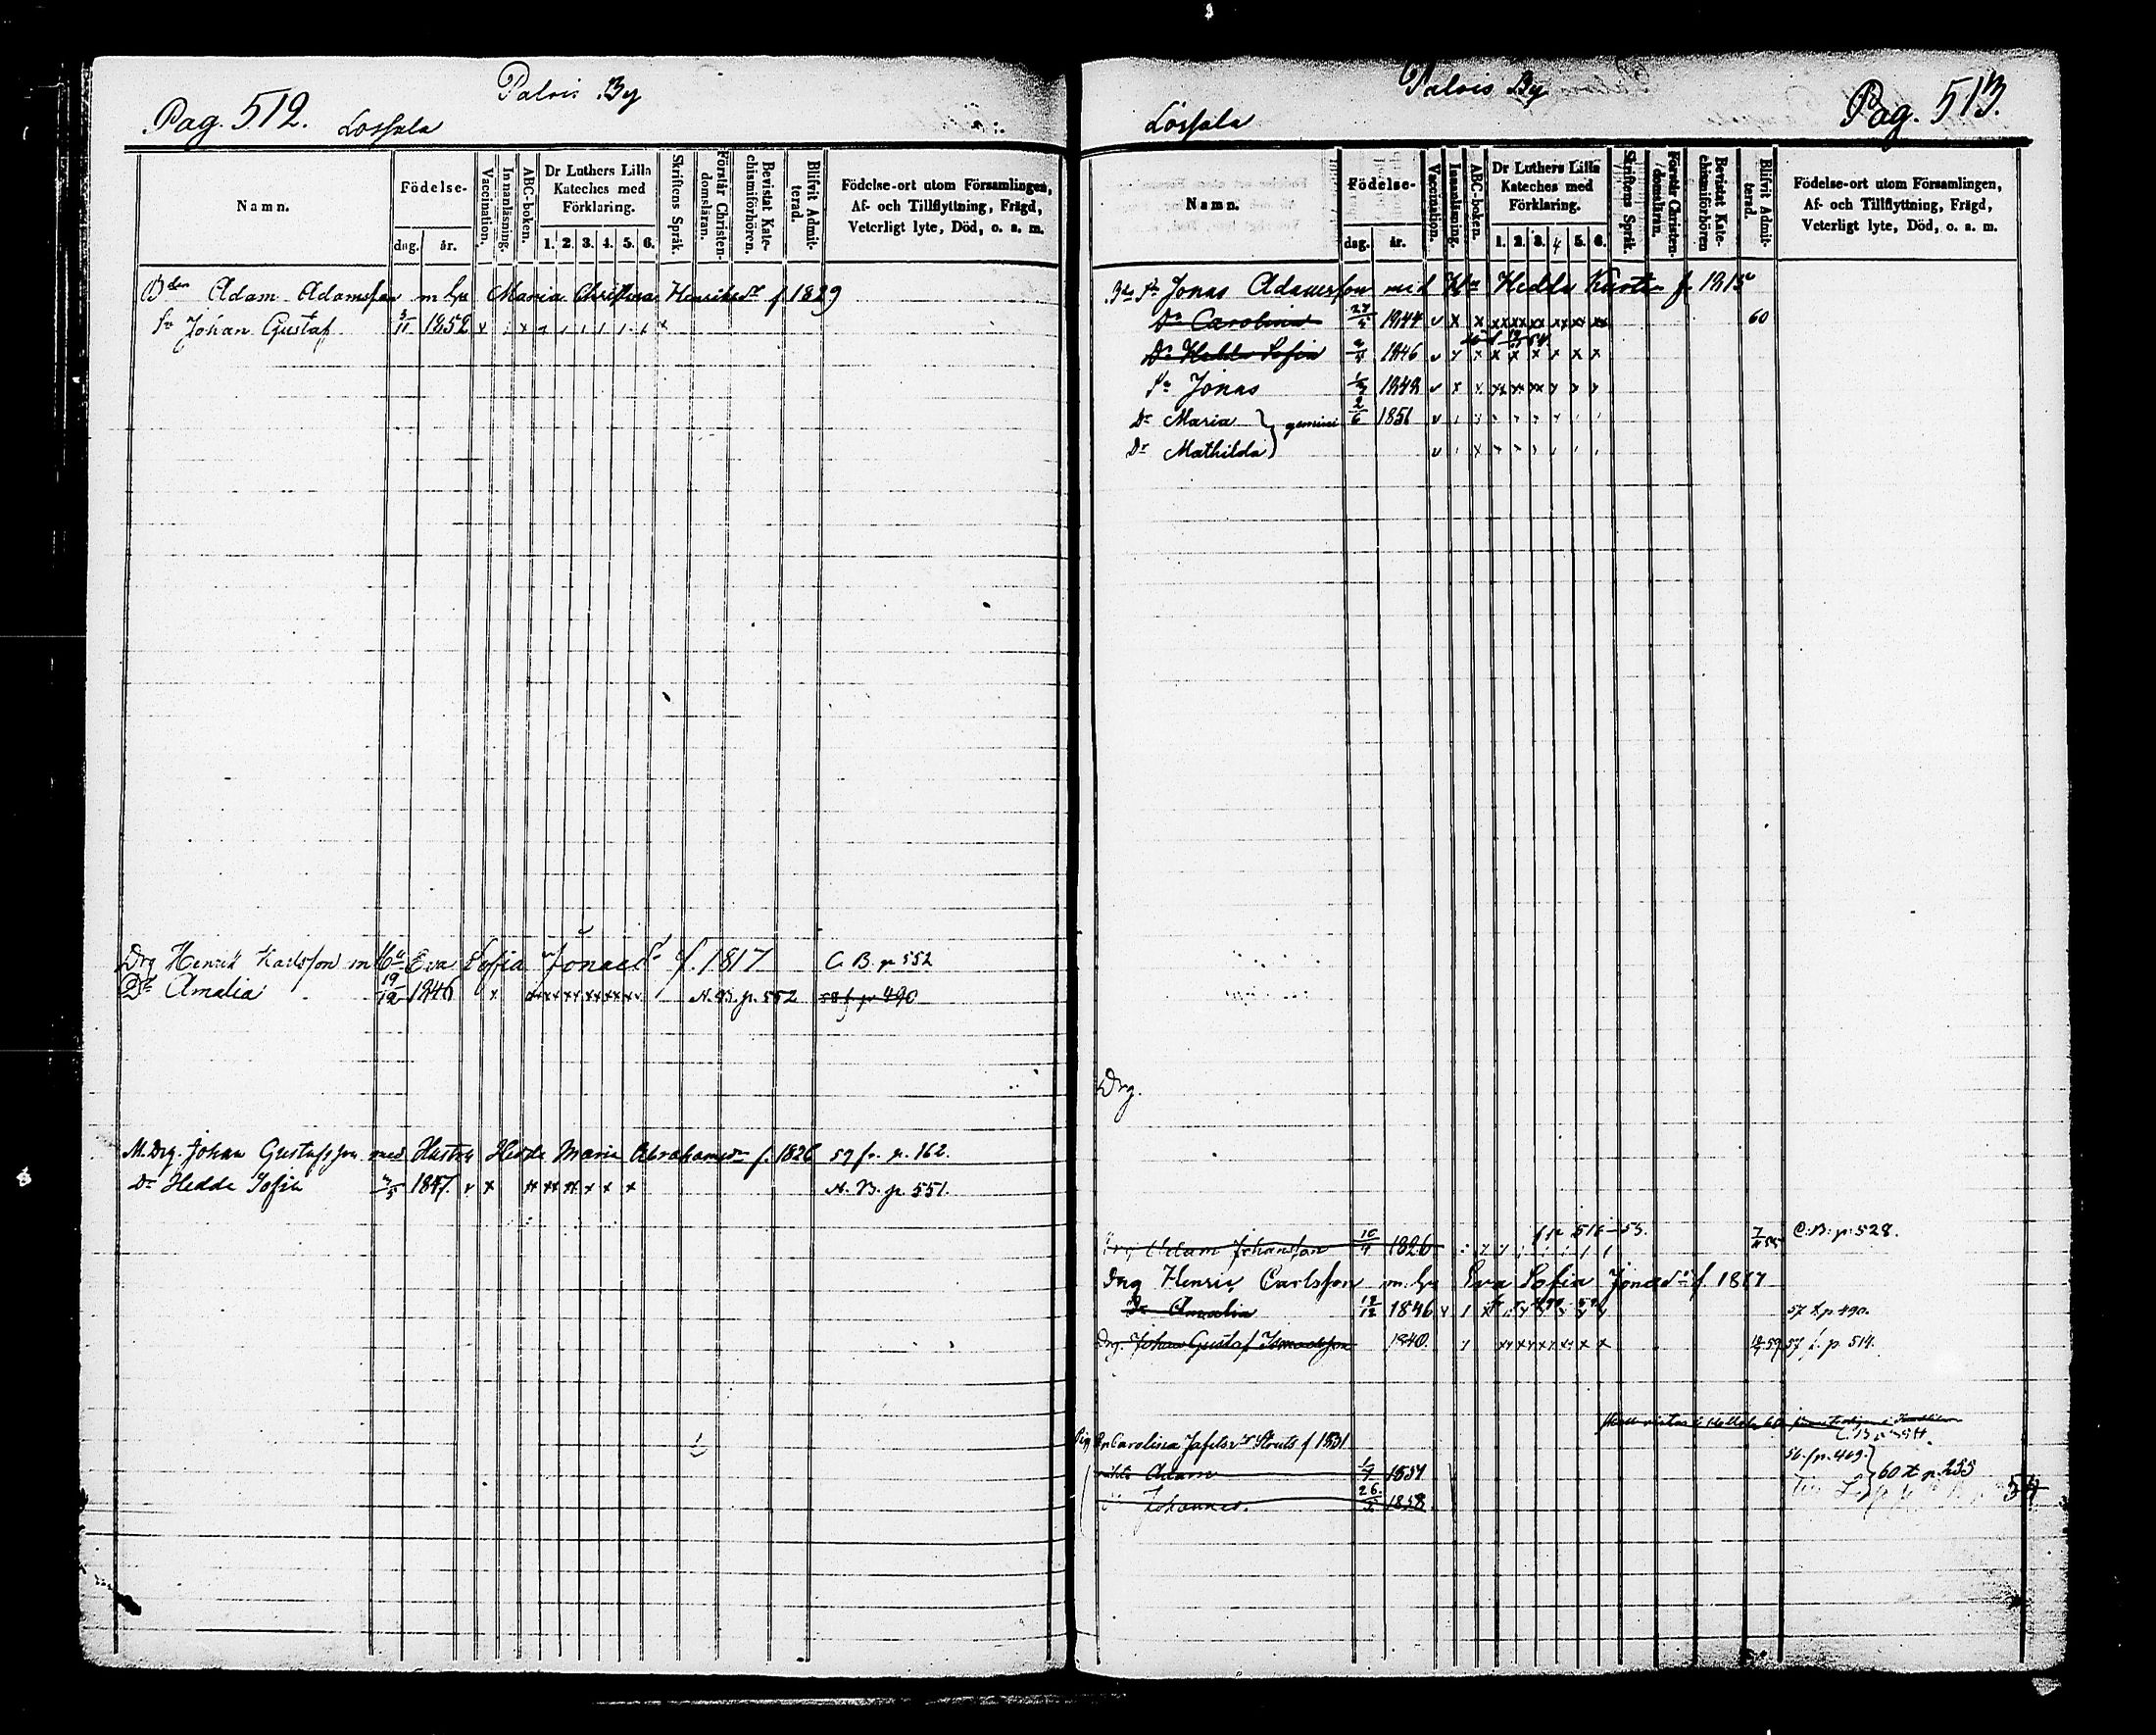 Pag. 512.
Palvis By
Lossala
Namn.
Födelse-
dag. år.
Vaccination.
Innanläsning.
ABC-boken.
Dr Luthers Lilla Kateches med Förklaring.
1. 2. 3. 4. 5. 6.
Skriftens Språk.
Förstår Christendomsläran.
Bevistat Katechismiförhören.
Blifvit Admitterad.
Födelse-ort utom Församlingen,
Af- och Tillflyttning, Frägd,
Veterligt lyte, Död, o. s. m.
Bden Adam Adamsson m hu Maria Christina Henriksdr f 1829
Sn Johan Gustaf 3/11 1852
Drg Henrik Karlsson m Hu Eva Sofia Jonaed f. 1817 C. B. p 552
Dr Amalia 19/12 1846 N. B. p. 552 58 f. p 490
M. Drg. Johan Gustafsson med Hustru Hedda Maria Abrahamsdr f. 1826 59 fr. p. 162.
Dr Hedda Sofia 1847. N. B. p 551.
Palvis By
Pag. 513.
Lossala
Namn.
Födelse-
dag. år.
Vaccination.
Innanläsning.
ABC-boken.
Dr Luthers Lilla Kateches med Förklaring.
1. 2. 3. 4 5. 6.
Skriftens Språk.
Förstår Christendomsläran.
Bevistat Katechismiförhören
Blifvit Admitterad.
Födelse-ort utom Församlingen,
Af- och Tillflyttning, Frägd,
Veterligt lyte, Död, o. s. m.
Jonas Adamsson med Hu Hedda f. 1815
Dr Carolina 27/5 1844 60
Dr Hedda Sofia 1846
Sn Jonas 1848
Dr Maria } gemini 2/6 1851
Dr Mathilda
Drg.
Drg Adam Johansson 10/9 1826 f p 516-55. C. B. p. 528.
Drg Henric Carlsson m. hu Eva Sofia Jonaedr f. 1817
Dr Amalia 19/12 1846 57 t p 490.
Drg. Johan Gustaf 1840. 57 f. p. 514.
Pig Carolina Jafetsdr Struts f 1831
56. f p. 409.
Adam 1/7 1851 60 t p. 255
Johannes. 26/5 1858
54